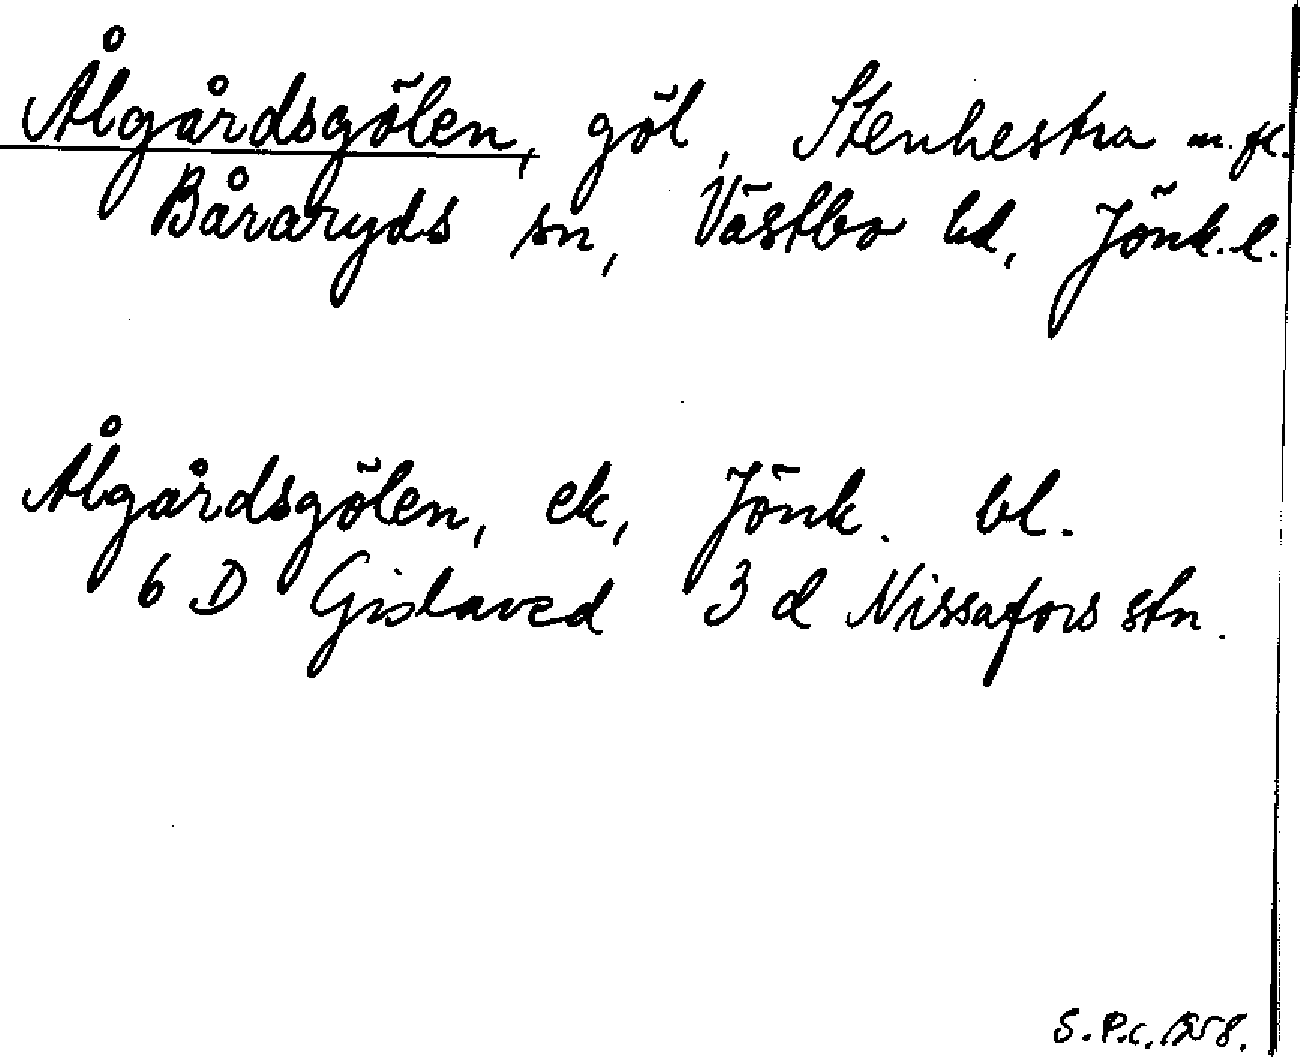 Ålgårdsgölen, göl, Stenhestra m.fl.
Båraryds sn, Västbo hd, Jönk.l.
Ålgårdsgölen, ek, Jönk. bl.
6 D Gislaved 3 d Nissafors stn.
S.P.c. 1258.